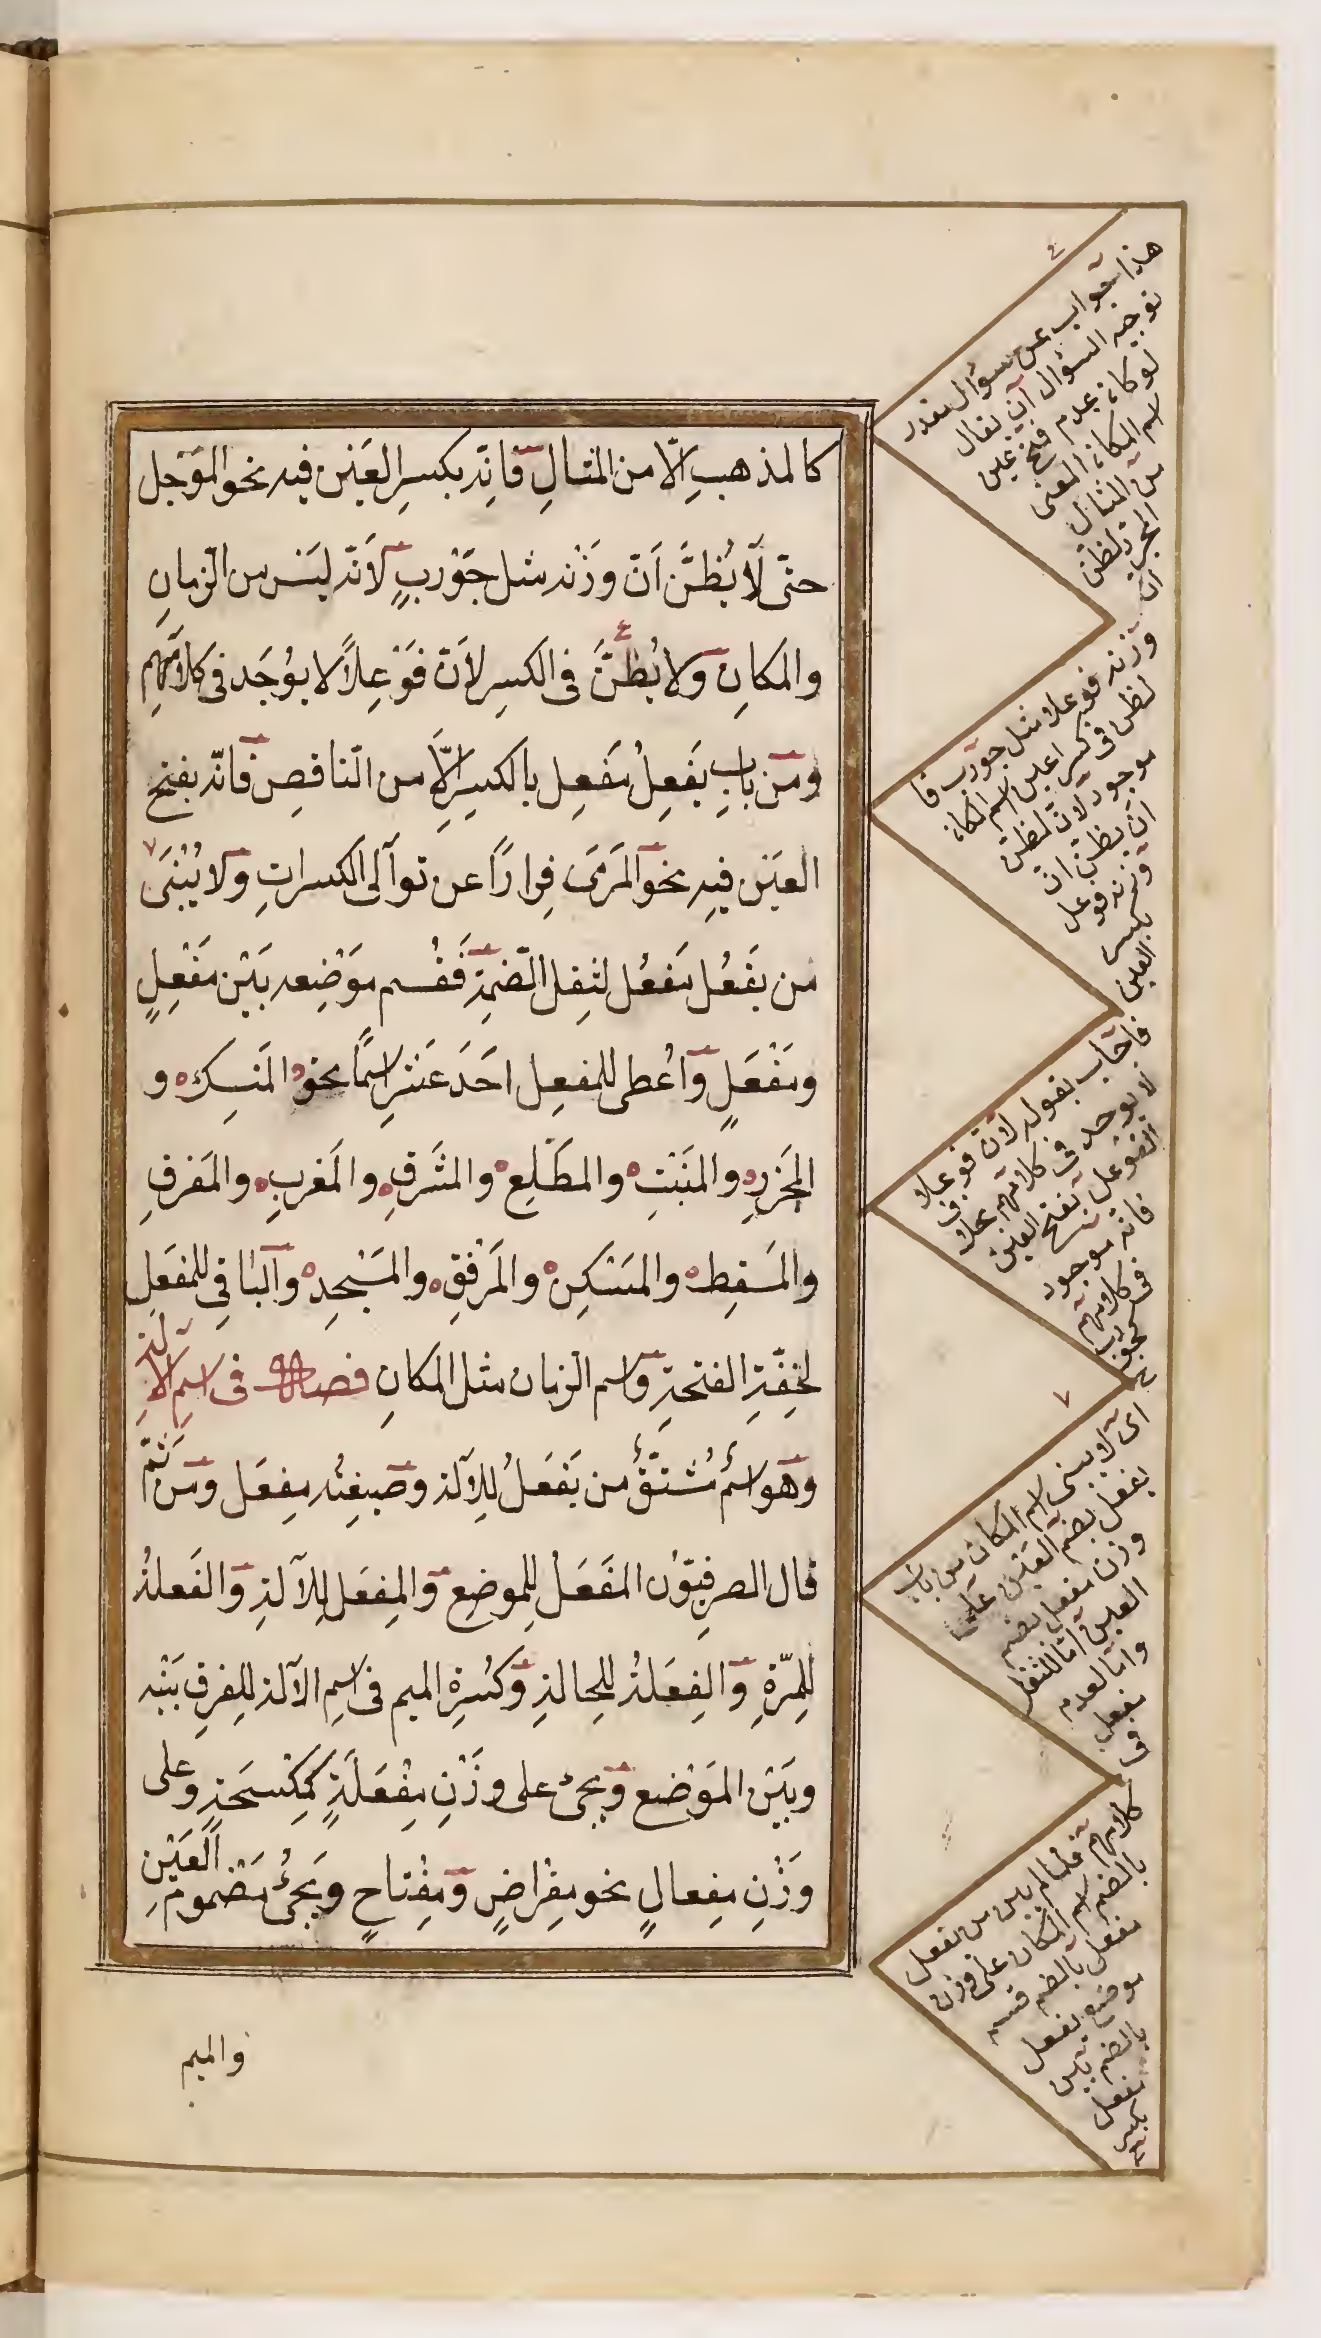 كالمذهب الّا من المثال فانّه بكسر العين فيه نحو الموجل
حتّى لا يُظنّ انّ وزنه مثل جَوْربٍ لانّه ليس من الزمان
والمكان ولا يُظنّ فى الكسر لانّ فَوْعِلاً لا يوُجَد فى كلامهم
ومن باب يَفعِلُ مَفعِل بالكسر الّا من الناقص فانّه بفتح
العين فيه نحو المَرمَى فِرارًا عن توالى الكسرات ولا يُبْنَى
من يَفعُل مَفعُل لثقل الضمّة فقُسم مَوْضِعه بَيْن مَفْعِلٍ
ومَفْعَلٍ واُعْطى للمفعِل احَدَ عَشَر اسمًا نحو المَنسِك و
المَجْزِرِ والمَنبِتِ والمَطْلِع والمَشرقِ والمَغربِ والمَفرقِ
والمَسقِط والمَسْكِن والمَرْفِقِ والمَسْجِدِ والباقى للمفعَل
لخِفّةِ الفتحةِ واسم الزمان مثل المكان فصل فى اسم الالة
وهو اسمٌ مُشتقٌّ من يَفعَلُ للآلة وصيغتُه مِفعَل ومن ثَمَّ
قال الصرفيّون المَفعَلُ للموضع والمِفعَل للآلة والفَعلةُ
للمرّةِ والفِعلةُ للحالة وكُسرة الميم فى اسم الآلة للفرق بَيْنه
وبَيْن المَوْضع ويجئ على وَزْنِ مِفْعَلَةٍ كمِكْسَحَةٍ وعلى
وَزْنِ مِفعالٍ نحو مِقْراضٍ ومِفْتاحٍ ويَجئُ مَضْموم العَيْن
والميم
٤
هذا جواب عن سؤال مقدر
توجيه السؤال ان يقال
لو كان عدم فتح عين
اسم المكان المعنى
من المثال
المجرد لظن
ان
وزنه فوعلا مثل جورب فا
لظن فى كسر عين اسم المكان
موجود لان لظن
ان يظن ان
وزنه فوعل
بكسر
العين
فاجاب بقوله لان فوعلا
لا يوجد فى كلامهم بخلاف
الفوعل بفتح العين
فانه موجود
فى كلامهم
نحو جورب
٧
اى لا يبنى اسم المكان من باب
يفعل بضم العين على
وزن مفعل بضم
العين اما للثقل
واما لعدم
مفعل
فى
كلامهم فلما لم يبن من يفعل
بالضم اسم المكان على وزن
مفعل بالضم قسم
موضع مفعل
بالضم بين
مفعل
بكسر